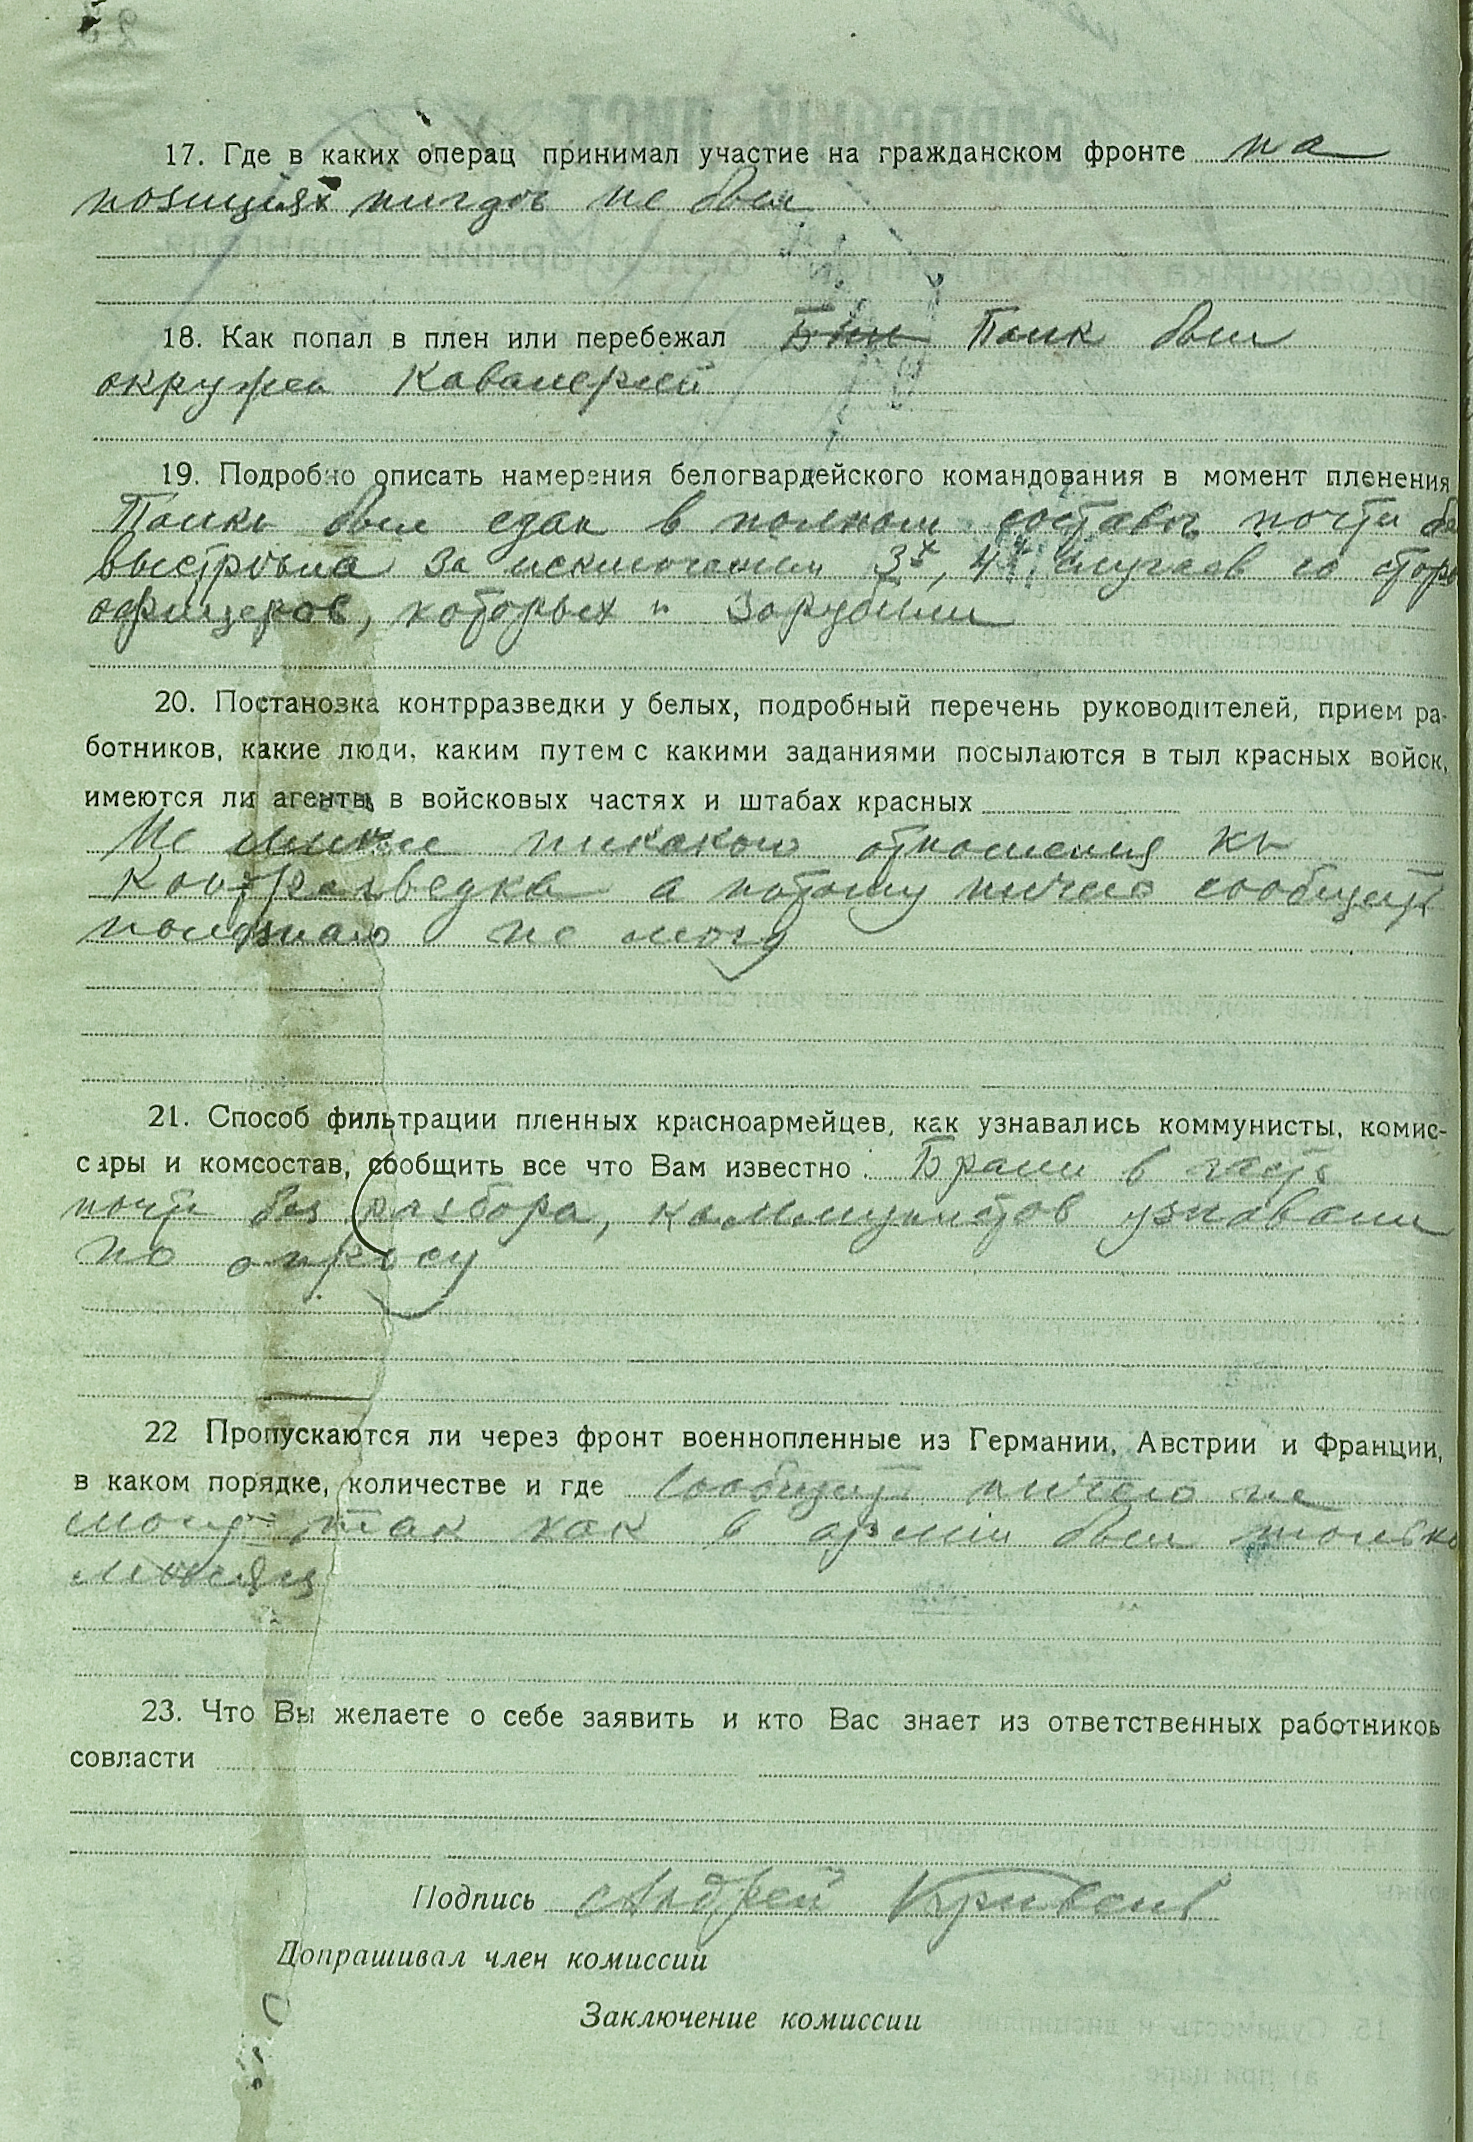 17. Где в каких операц принимал участие на гражданском фронте на
позициях нигдѣ не был
18. Как попал в плен или перебежал Был Полк был
окружен Кавалерией
19. Подробно описать намерения белогвардейского командования в момент пленения
Полкъ был сдан в полном составѣ почти бе
выстрѣла за исключением 3х, 4х случаев со сторо
офицеров, которых и зарубили
20. Постановка контрразведки у белых, подробный перечень руководителей, прием ра-
ботников, какие люди, каким путем с какими заданиями посылаются в тыл красных войск,
имеются ли агенты в войсковых частях и штабах красных
Не имѣл никакого отношения къ
Контрразведкѣ а потому ничего сообщить
не могу
21. Способ фильтрации пленных красноармейцев, как узнавались коммунисты, комис-
сары и комсостав, сообщить все что Вам известно Брали в часть
почти без разбора, коммунистов узнавали
по опросу
22 Пропускаются ли через фронт военнопленные из Германии, Австрии и Франции,
в каком порядке, количестве и где Сообщить ничего не
могу так как в арміи был только
мѣсяц
23. Что Вы желаете о себе заявить и кто Вас знает из ответственных работников
совласти
Подпись Андрей Кривень
Допрашивал член комиссии
Заключение комиссии